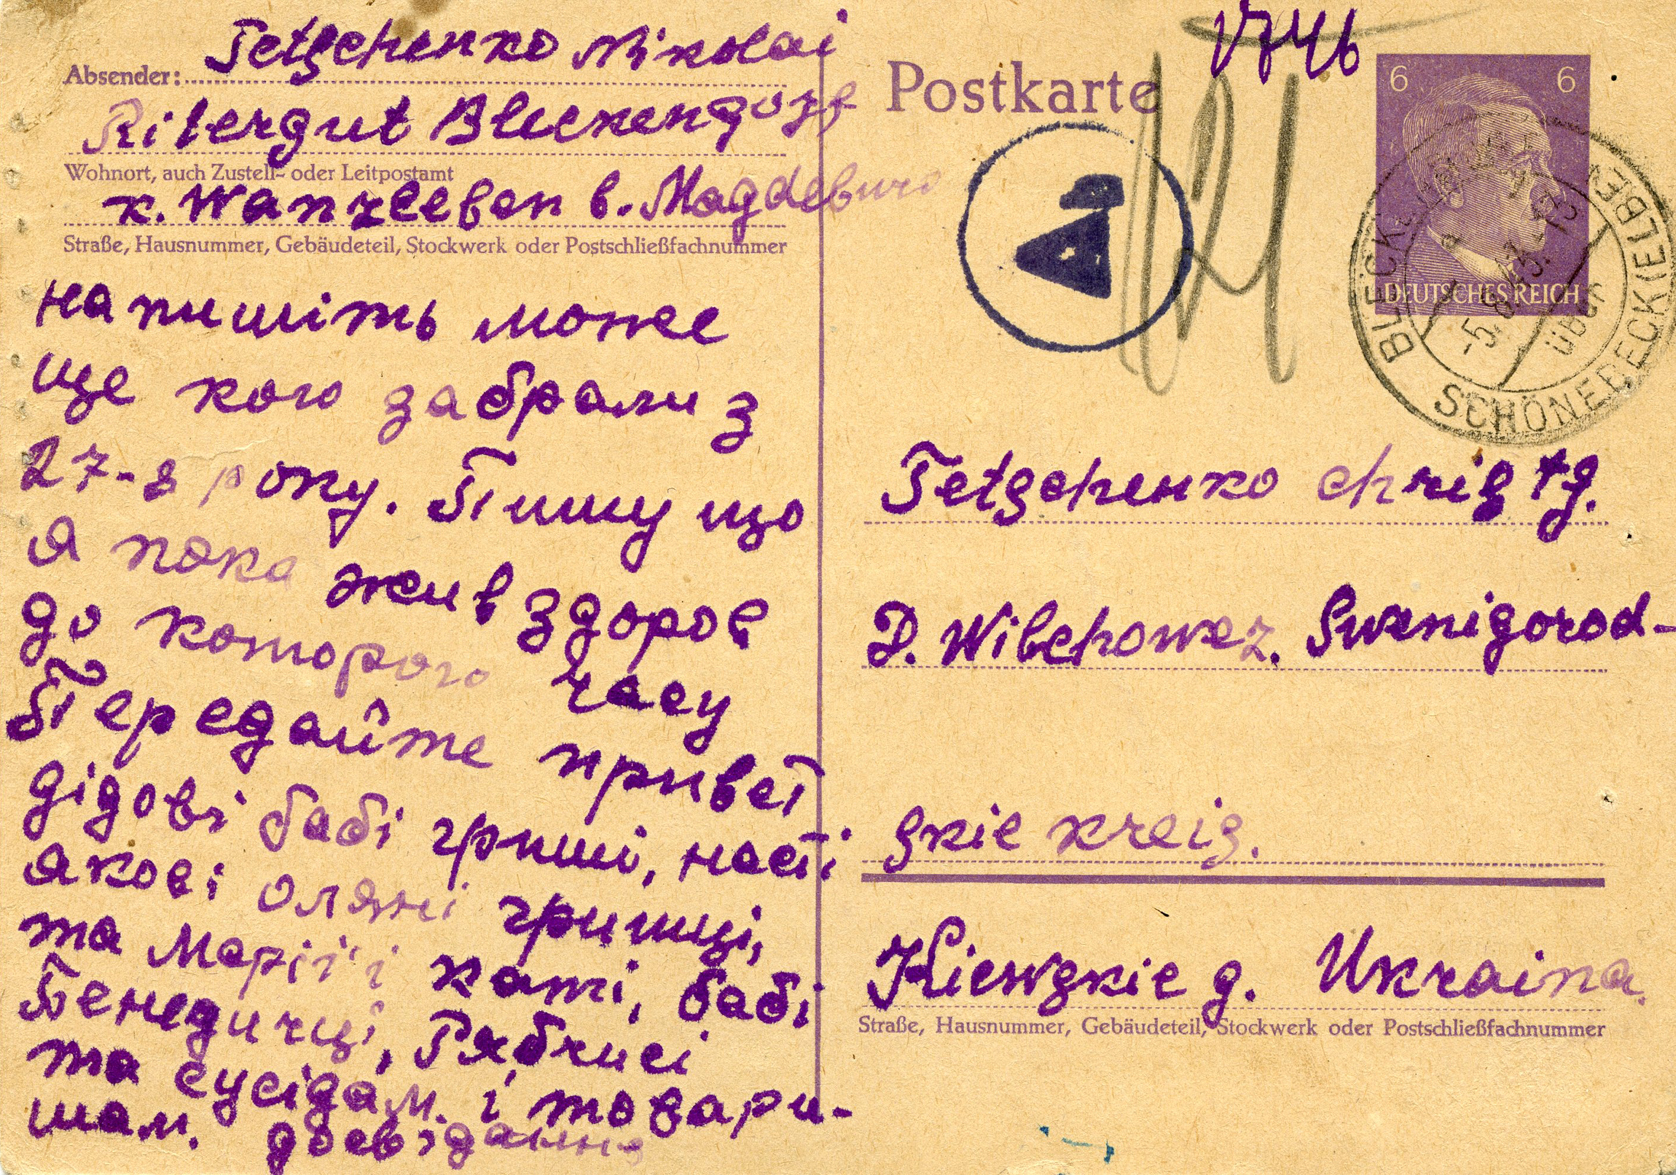 Absender: Tetschenko Nikolai
Ritergut Bleckendorf
Wohnort, auch Zustell- oder Leitpostamt
k. Wanzleben b. Magdeburg
Straße, Hausnummer, Gebäudeteil, Stockwerk oder Postschließfachnummer
напишіть може
ще кого забрали з
27-8 року. Пишу що
я пока жив здоров
до которого часу
Передайте привєт
дідові бабі гриші, насті
якові оляні гришці,
та Марії і каті, бабі
Бенедичці, Рябчисі
та сусідам. і товари-
шам. досвідання
Postkarte
6 6
DEUTSCHES REICH
A
SCHÖNEBECK (ELBE)
über
Tetschenko christj.
D. Wilchowez. Swenigorod-
skie kreis.
Kiewskie g. Ukraina.
Straße, Hausnummer, Gebäudeteil, Stockwerk oder Postschließfachnummer